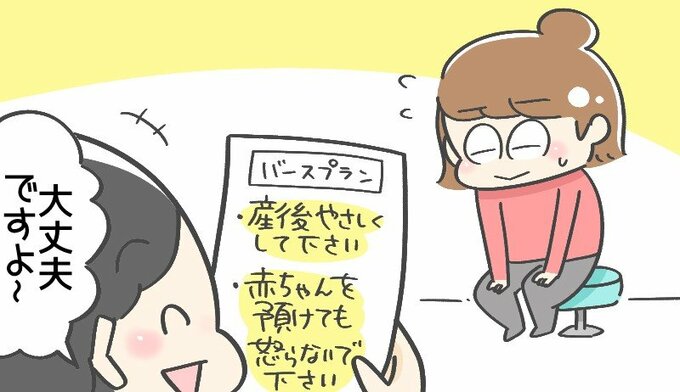 バースプラン
・産後やさしく
して下さい
・赤ちゃんを
預けても
怒らないで
下さい
大丈夫
ですよ~